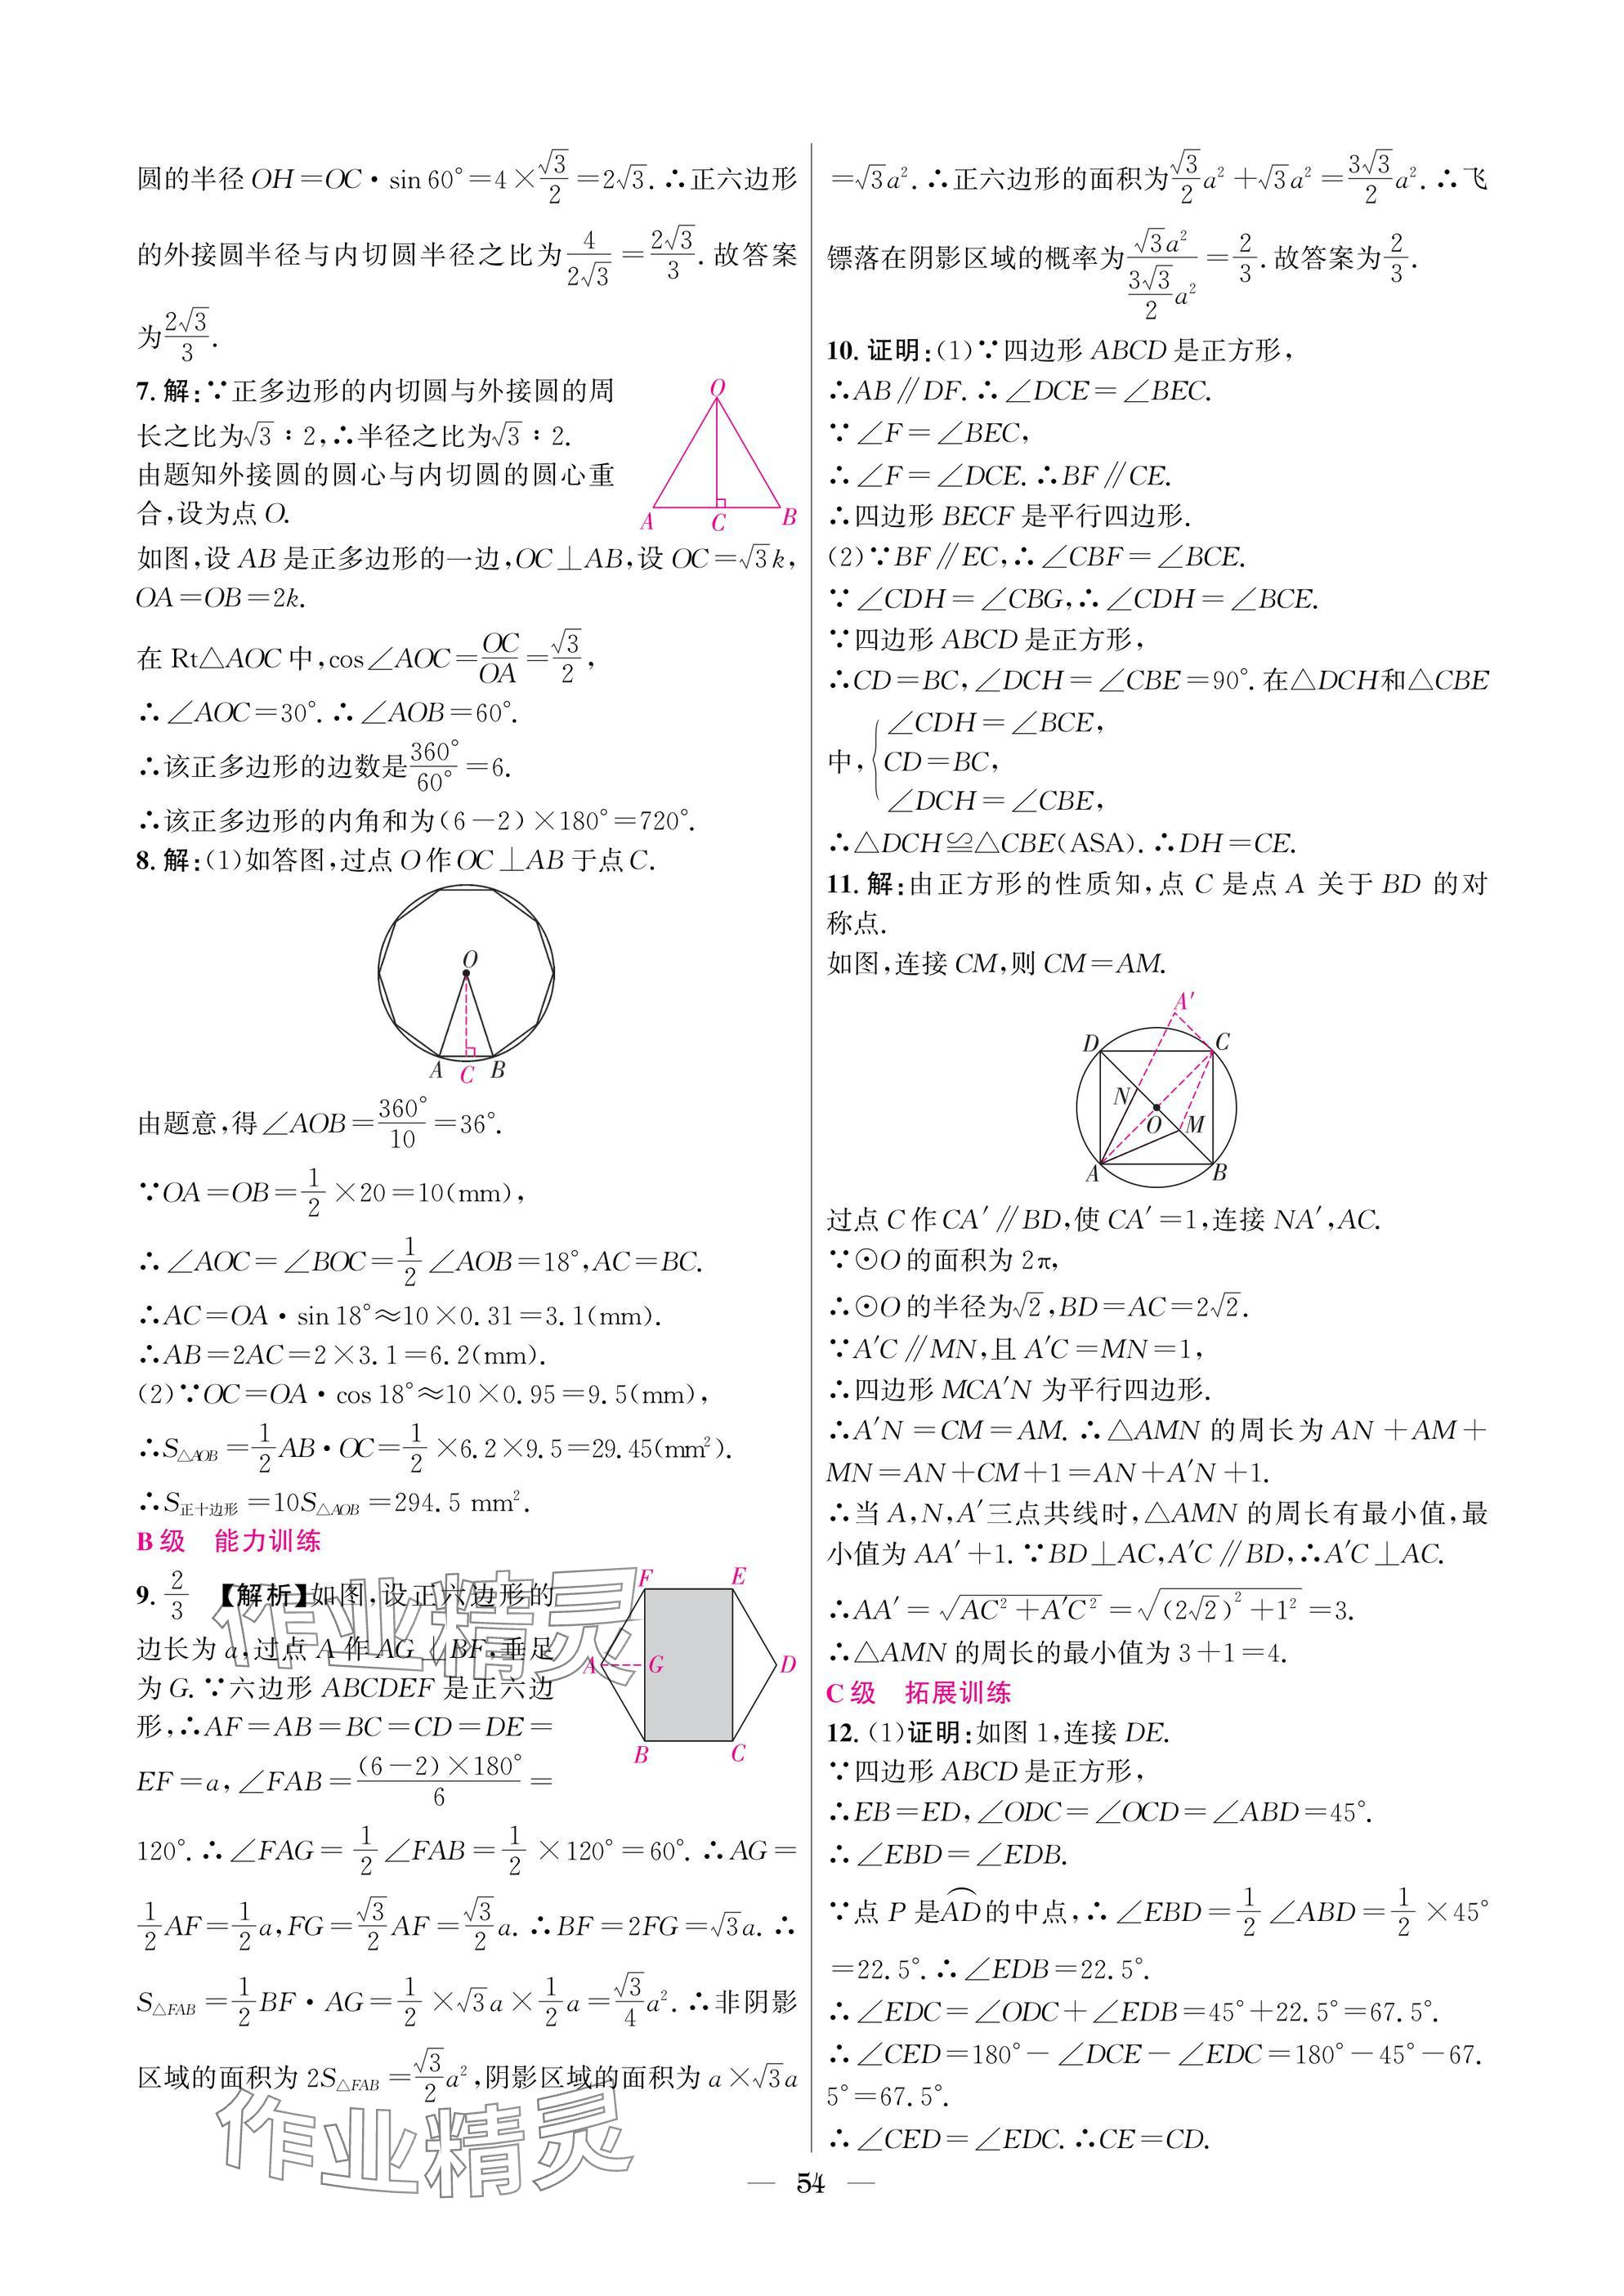 圆的半径 OH=OC·sin 60°=4×√3/2=2√3.∴正六边形
的外接圆半径与内切圆半径之比为4/(2√3)=2√3/3.故答案
为2√3/3.
7. 解:∵正多边形的内切圆与外接圆的周
长之比为√3∶2,∴半径之比为√3∶2.
由题知外接圆的圆心与内切圆的圆心重
合,设为点 O.
O
A C B
如图,设 AB 是正多边形的一边,OC⊥AB,设 OC=√3k,
OA=OB=2k.
在 Rt△AOC 中,cos∠AOC=OC/OA=√3/2,
∴∠AOC=30°.∴∠AOB=60°.
∴该正多边形的边数是360°/60°=6.
∴该正多边形的内角和为(6-2)×180°=720°.
8. 解:(1)如答图,过点 O 作 OC⊥AB 于点 C.
O
A C B
由题意,得∠AOB=360°/10=36°.
∵OA=OB=1/2×20=10(mm),
∴∠AOC=∠BOC=1/2∠AOB=18°,AC=BC.
∴AC=OA·sin 18°≈10×0.31=3.1(mm).
∴AB=2AC=2×3.1=6.2(mm).
(2)∵OC=OA·cos 18°≈10×0.95=9.5(mm),
∴S△AOB=1/2AB·OC=1/2×6.2×9.5=29.45(mm²).
∴S正十边形=10S△AOB=294.5 mm².
B 级 能力训练
9. 2/3 【解析】如图,设正六边形的
边长为 a,过点 A 作 AG⊥BF,垂足
为 G.∵六边形 ABCDEF 是正六边
形,∴AF=AB=BC=CD=DE=
EF=a,∠FAB=(6-2)×180°/6=
F E
A G D
B C
120°.∴∠FAG=1/2∠FAB=1/2×120°=60°.∴AG=
1/2AF=1/2a,FG=√3/2AF=√3/2a.∴BF=2FG=√3a.∴
S△FAB=1/2BF·AG=1/2×√3a×1/2a=√3/4a².∴非阴影
区域的面积为 2S△FAB=√3/2a²,阴影区域的面积为 a×√3a
=√3a².∴正六边形的面积为√3/2a²+√3a²=3√3/2a².∴飞
镖落在阴影区域的概率为√3a²/(3√3/2a²)=2/3.故答案为2/3.
10. 证明:(1)∵四边形 ABCD 是正方形,
∴AB∥DF.∴∠DCE=∠BEC.
∵∠F=∠BEC,
∴∠F=∠DCE.∴BF∥CE.
∴四边形 BECF 是平行四边形.
(2)∵BF∥EC,∴∠CBF=∠BCE.
∵∠CDH=∠CBG,∴∠CDH=∠BCE.
∵四边形 ABCD 是正方形,
∴CD=BC,∠DCH=∠CBE=90°.在△DCH和△CBE
∠CDH=∠BCE,
中,{CD=BC,
∠DCH=∠CBE,
∴△DCH≌△CBE(ASA).∴DH=CE.
11. 解:由正方形的性质知,点 C 是点 A 关于 BD 的对
称点.
如图,连接 CM,则 CM=AM.
A′
D C
N
O M
A B
过点 C 作 CA′∥BD,使 CA′=1,连接 NA′,AC.
∵⊙O 的面积为 2π,
∴⊙O 的半径为√2,BD=AC=2√2.
∵A′C∥MN,且 A′C=MN=1,
∴四边形 MCA′N 为平行四边形.
∴A′N=CM=AM.∴△AMN 的周长为 AN+AM+
MN=AN+CM+1=AN+A′N+1.
∴当 A,N,A′三点共线时,△AMN 的周长有最小值,最
小值为 AA′+1.∵BD⊥AC,A′C∥BD,∴A′C⊥AC.
∴AA′=√(AC²+A′C²)=√((2√2)²+1²)=3.
∴△AMN 的周长的最小值为 3+1=4.
C 级 拓展训练
12. (1)证明:如图 1,连接 DE.
∵四边形 ABCD 是正方形,
∴EB=ED,∠ODC=∠OCD=∠ABD=45°.
∴∠EBD=∠EDB.
∵点 P 是⌒AD的中点,∴∠EBD=1/2∠ABD=1/2×45°
=22.5°.∴∠EDB=22.5°.
∴∠EDC=∠ODC+∠EDB=45°+22.5°=67.5°.
∴∠CED=180°-∠DCE-∠EDC=180°-45°-67.
5°=67.5°.
∴∠CED=∠EDC.∴CE=CD.
作业精灵
作业精灵
— 54 —